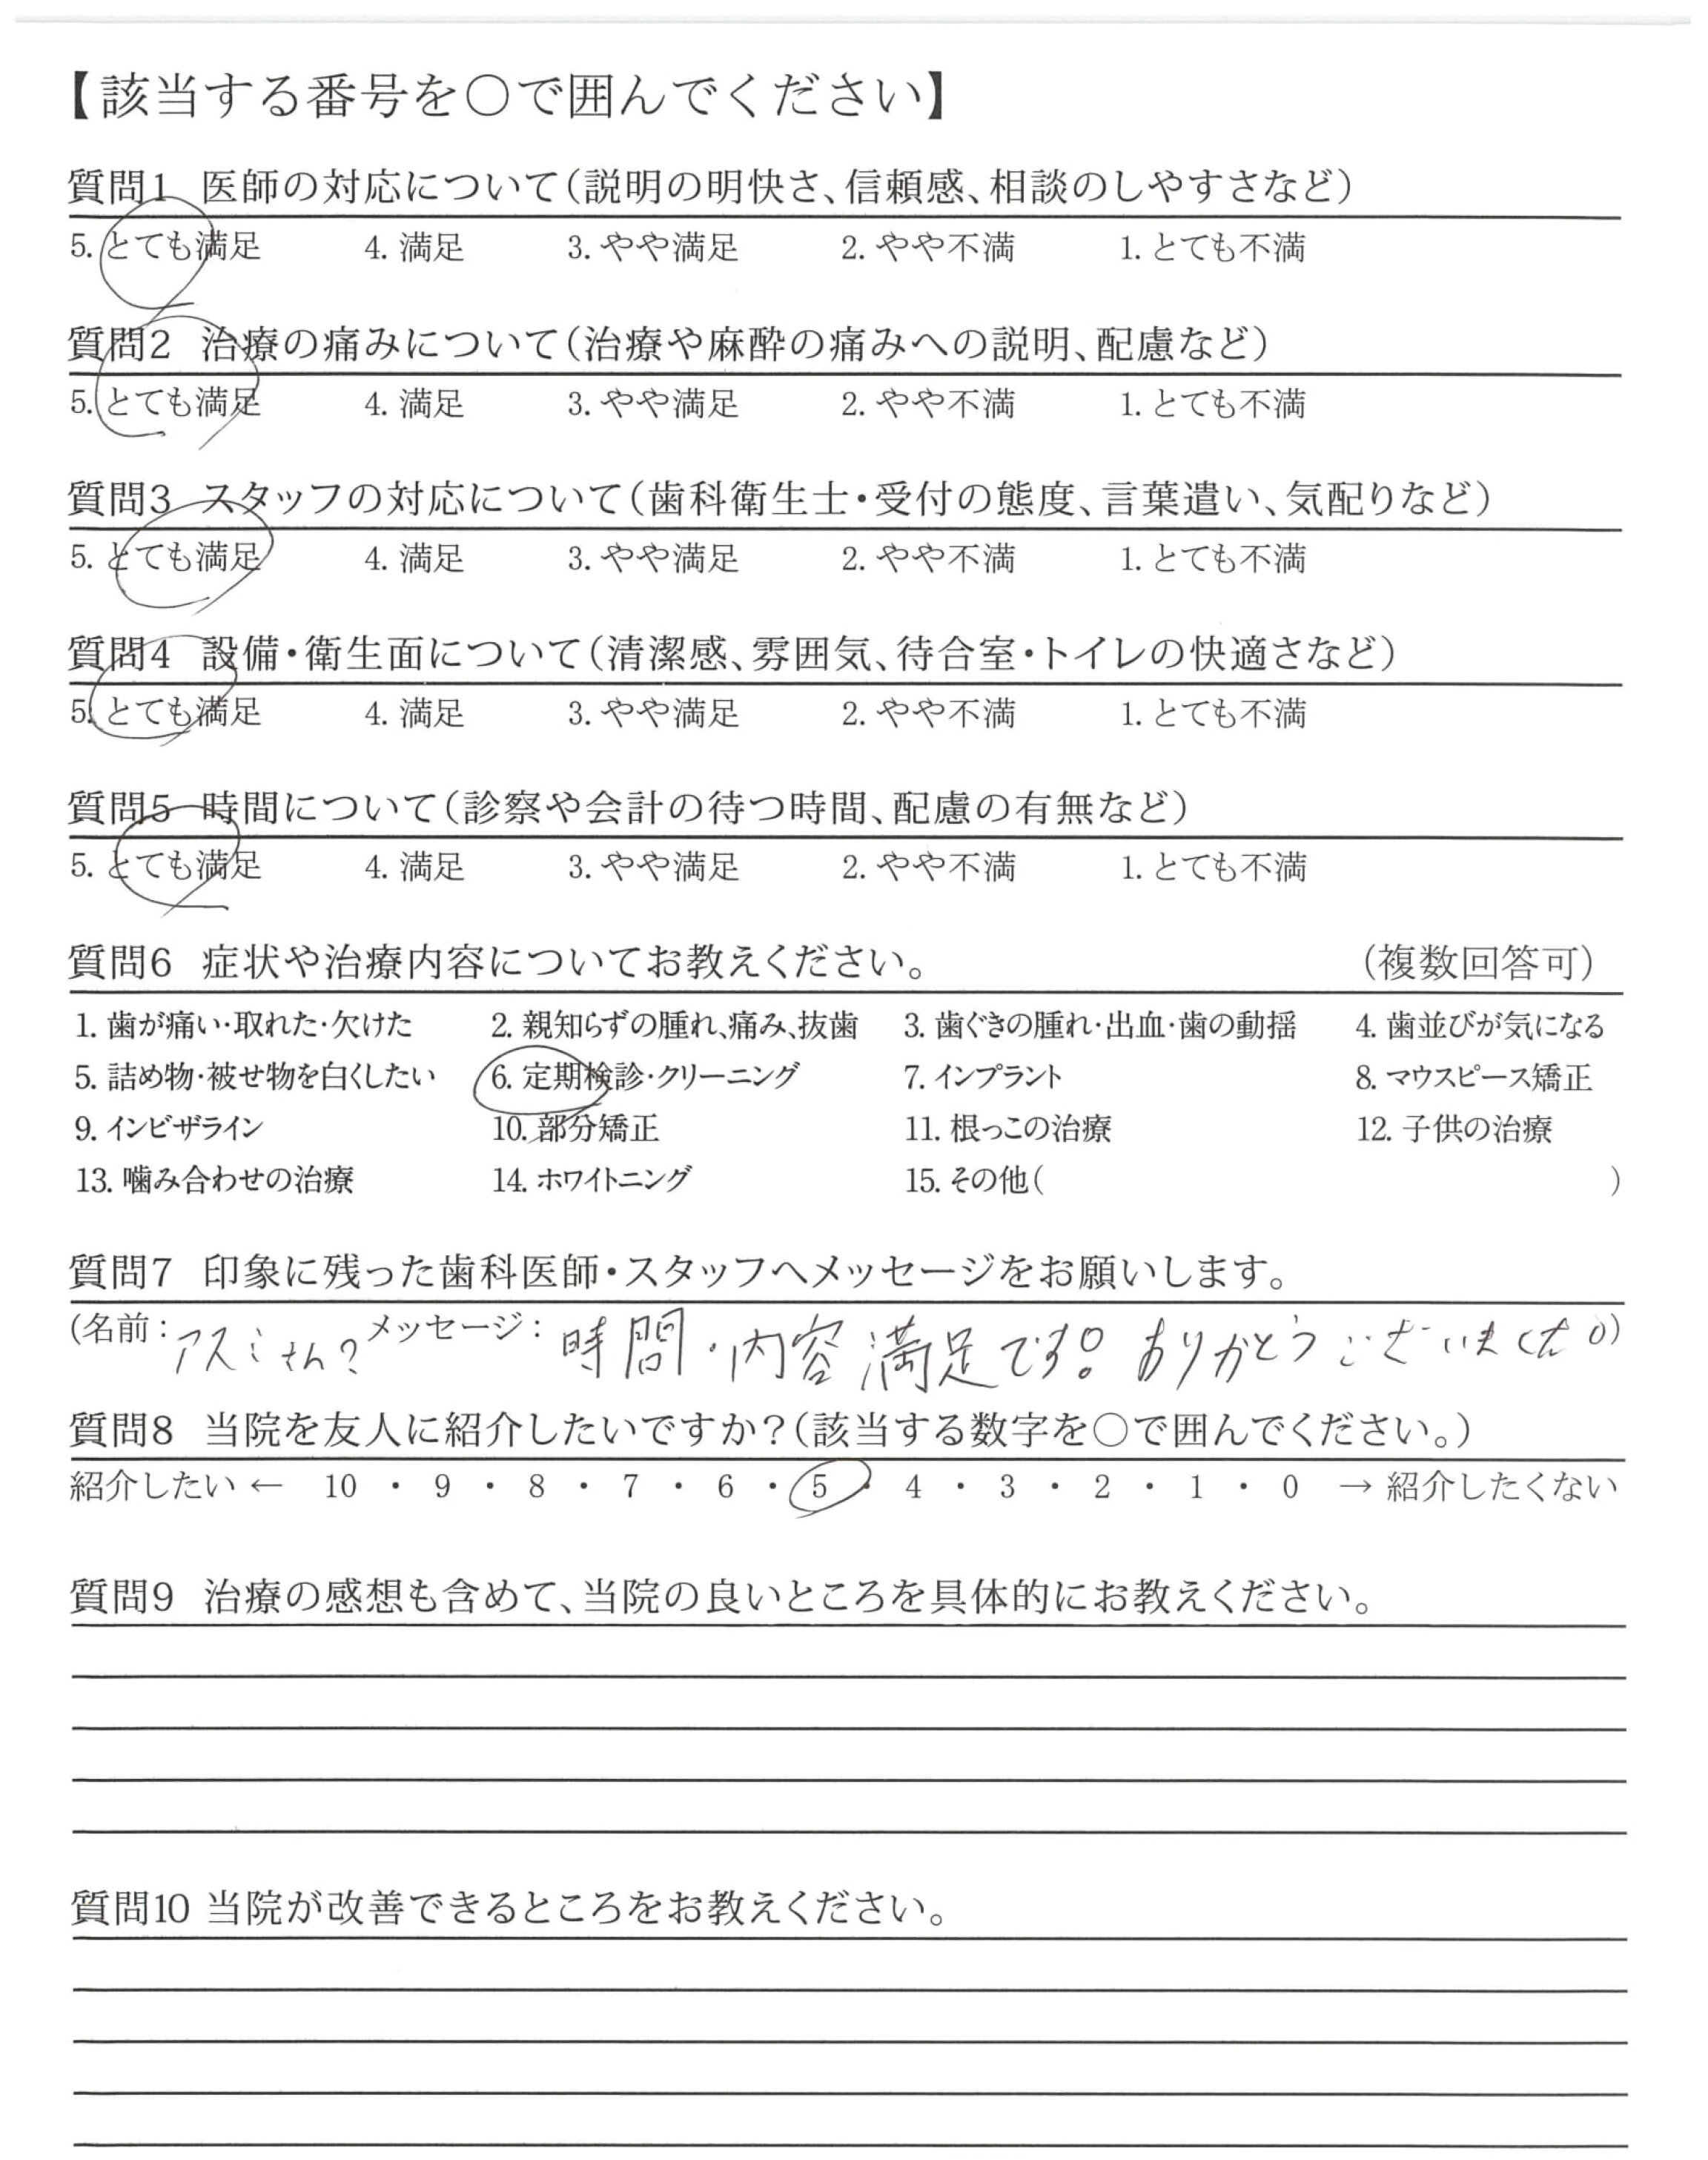 【該当する番号を○で囲んでください】
質問1 医師の対応について(説明の明快さ、信頼感、相談のしやすさなど)
5. とても満足 4. 満足 3. やや満足 2. やや不満 1. とても不満
質問2 治療の痛みについて(治療や麻酔の痛みへの説明、配慮など)
5. とても満足 4. 満足 3. やや満足 2. やや不満 1. とても不満
質問3 スタッフの対応について(歯科衛生士・受付の態度、言葉遣い、気配りなど)
5. とても満足 4. 満足 3. やや満足 2. やや不満 1. とても不満
質問4 設備・衛生面について(清潔感、雰囲気、待合室・トイレの快適さなど)
5. とても満足 4. 満足 3. やや満足 2. やや不満 1. とても不満
質問5 時間について(診察や会計の待つ時間、配慮の有無など)
5. とても満足 4. 満足 3. やや満足 2. やや不満 1. とても不満
質問6 症状や治療内容についてお教えください。 (複数回答可)
1. 歯が痛い・取れた・欠けた 2. 親知らずの腫れ、痛み、抜歯 3. 歯ぐきの腫れ・出血・歯の動揺 4. 歯並びが気になる
5. 詰め物・被せ物を白くしたい 6. 定期検診・クリーニング 7. インプラント 8. マウスピース矯正
9. インビザライン 10. 部分矯正 11. 根っこの治療 12. 子供の治療
13. 噛み合わせの治療 14. ホワイトニング 15. その他( )
質問7 印象に残った歯科医師・スタッフへメッセージをお願いします。
(名前: アスミさん? メッセージ: 時間・内容満足です。ありがとうございました。)
質問8 当院を友人に紹介したいですか?(該当する数字を○で囲んでください。)
紹介したい ← 10 ・ 9 ・ 8 ・ 7 ・ 6 ・ 5 ・ 4 ・ 3 ・ 2 ・ 1 ・ 0 → 紹介したくない
質問9 治療の感想も含めて、当院の良いところを具体的にお教えください。
質問10 当院が改善できるところをお教えください。